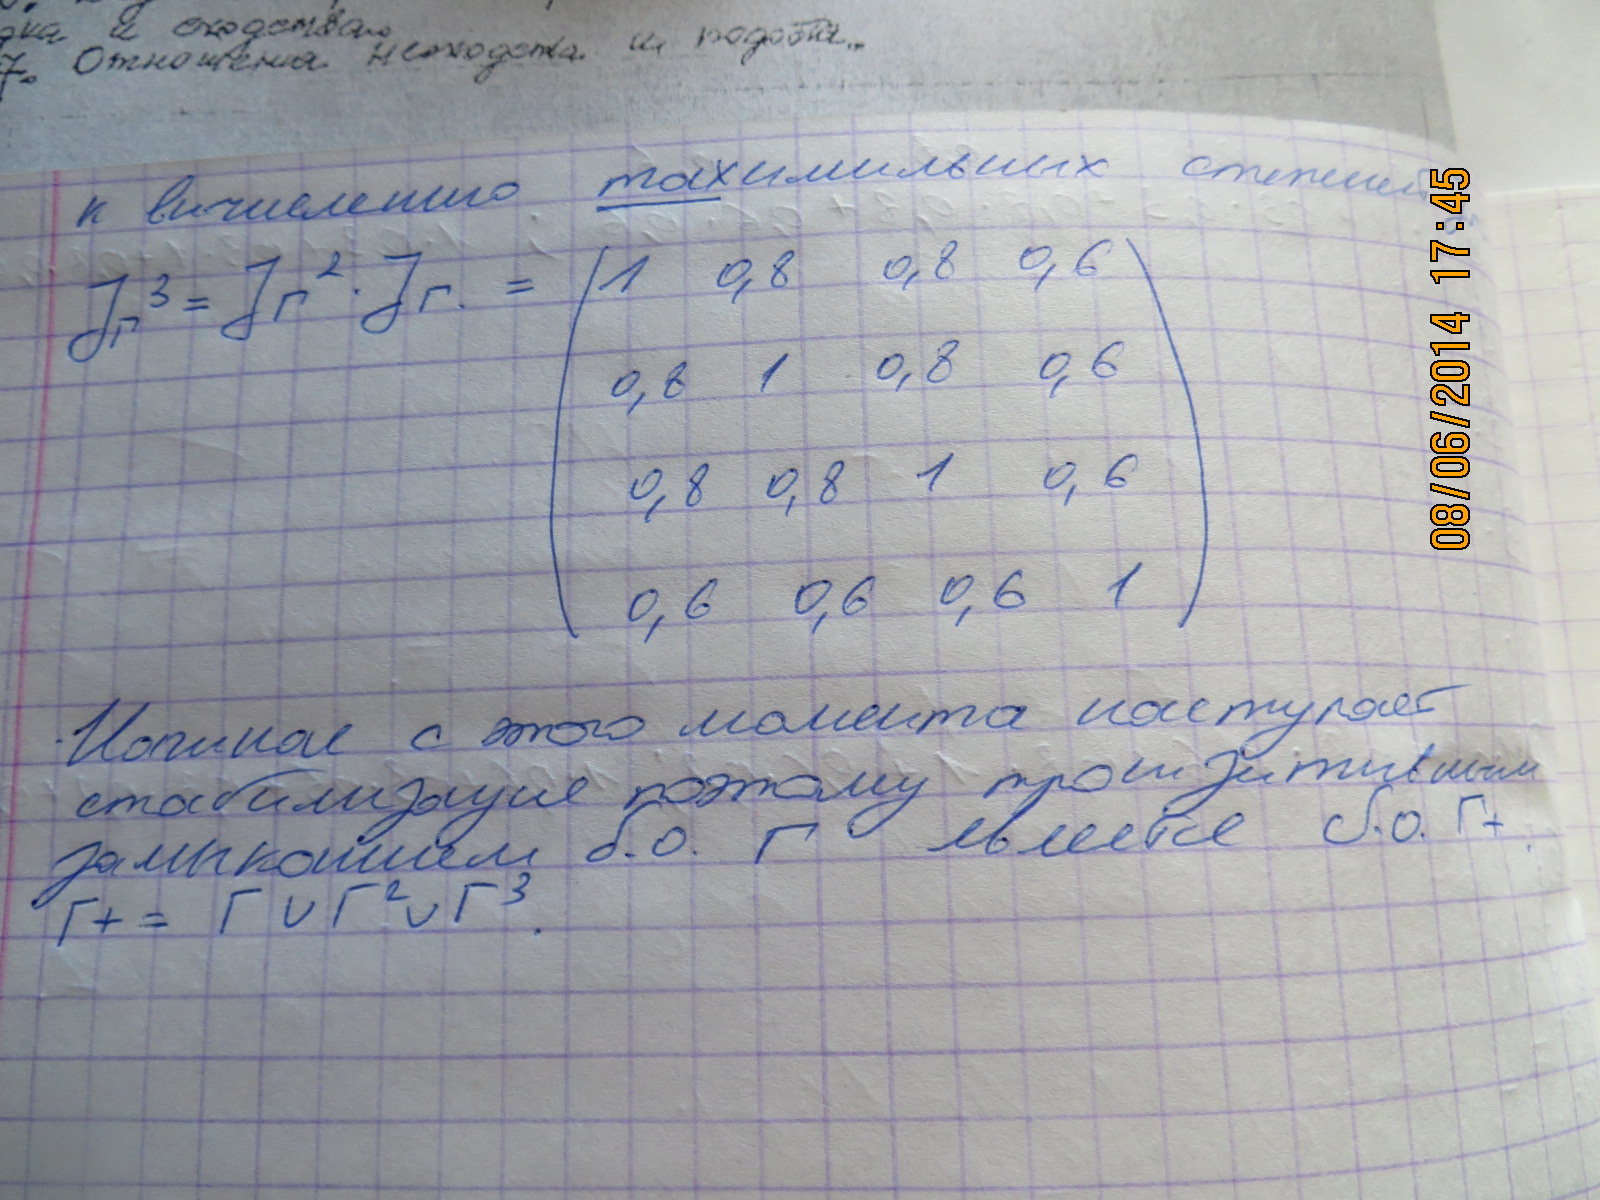 дка и сходства.
7. Отношения несходства и
к вичислению maxиминных степеней
J_Г³ = J_Г² · J_Г. = 1 0,8 0,8 0,6
0,8 1 0,8 0,6
0,8 0,8 1 0,6
0,6 0,6 0,6 1
Начиная с этого момента наступает
стабилизация поэтому транзитивным
замыканием б.о. Г является б.о. Г+.
Г+ = Г ∪ Г² ∪ Г³.
08/06/2014 17:45